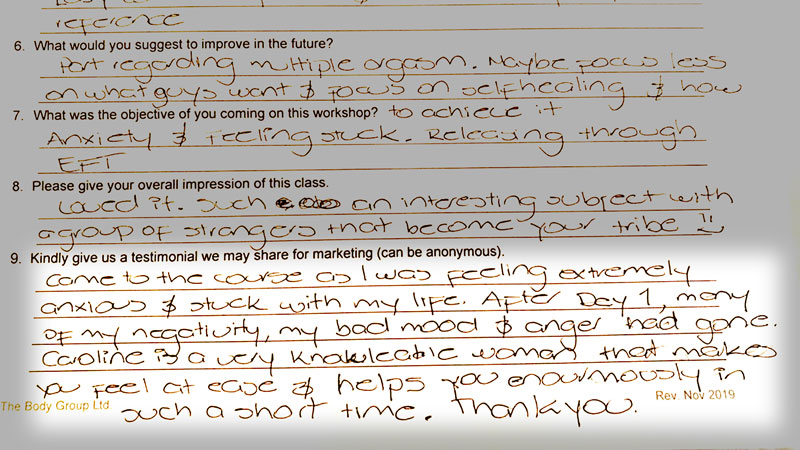 reference
6. What would you suggest to improve in the future?
Part regarding multiple orgasm. Maybe focus less
on what guys want & focus on selfhealing & how
7. What was the objective of you coming on this workshop? to achieve it
Anxiety & Feeling stuck. Releasing through
EFT
8. Please give your overall impression of this class.
Loved it. Such an interesting subject with
a group of strangers that become your tribe
9. Kindly give us a testimonial we may share for marketing (can be anonymous).
Came to the course as I was feeling extremely
anxious & stuck with my life. After Day 1, many
of my negativity, my bad mood & anger had gone.
Caroline is a very knowleable woman that makes
you feel at ease & helps you enourmously in
The Body Group Ltd. such a short time. Thank you. Rev. Nov 2019